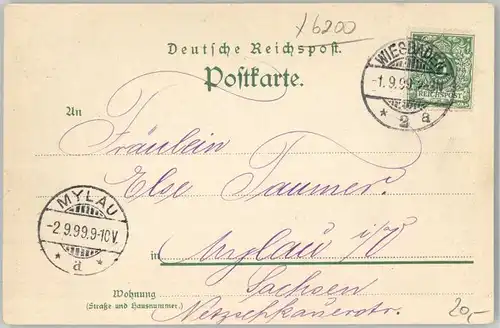 x6200
Deutsche Reichspost.
Postkarte.
WIESBADEN
-1.9.99.
* 2 a
REICHSPOST
An
Fräulein
Else Taumer.
MYLAU
-2.9.99.9-10V.
* a *
in Mylau i/V
Sachsen
Wohnung
(Straße und Hausnummer.)
Netzschkauerstr.
20,-